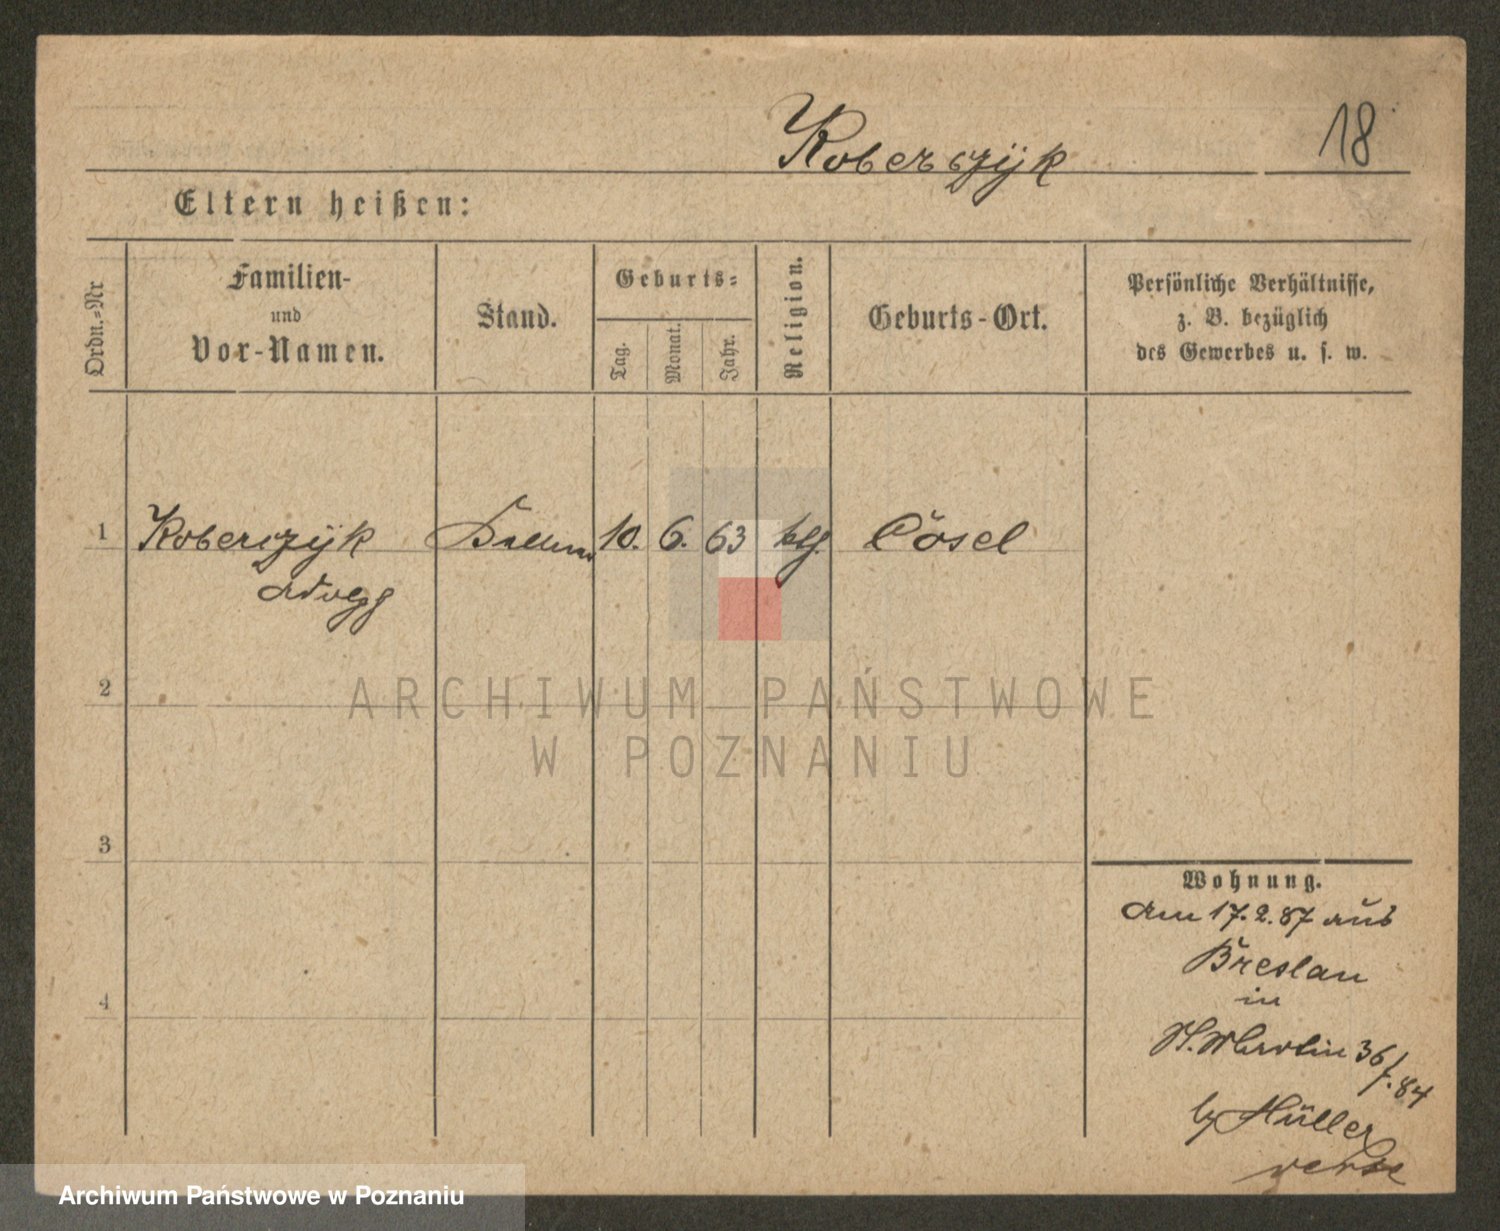 Koberczÿk 18
Eltern heißen:
Ordn.-Nr
Familien-
und
Vor-Namen.
Stand.
Geburts-
Tag.
Monat.
Jahr.
Religion.
Geburts-Ort.
Persönliche Verhältnisse,
z. B. bezüglich
des Gewerbes u. s. w.
1 Koberczÿk 10. 6. 63 ktl. Cosel
2
ARCHIWUM PAŃSTWOWE
W POZNANIU
3
Wohnung.
Am 17.2.87 aus
Breslau
in
St. Martin 36
f. 84
by Müller
4
Archiwum Państwowe w Poznaniu